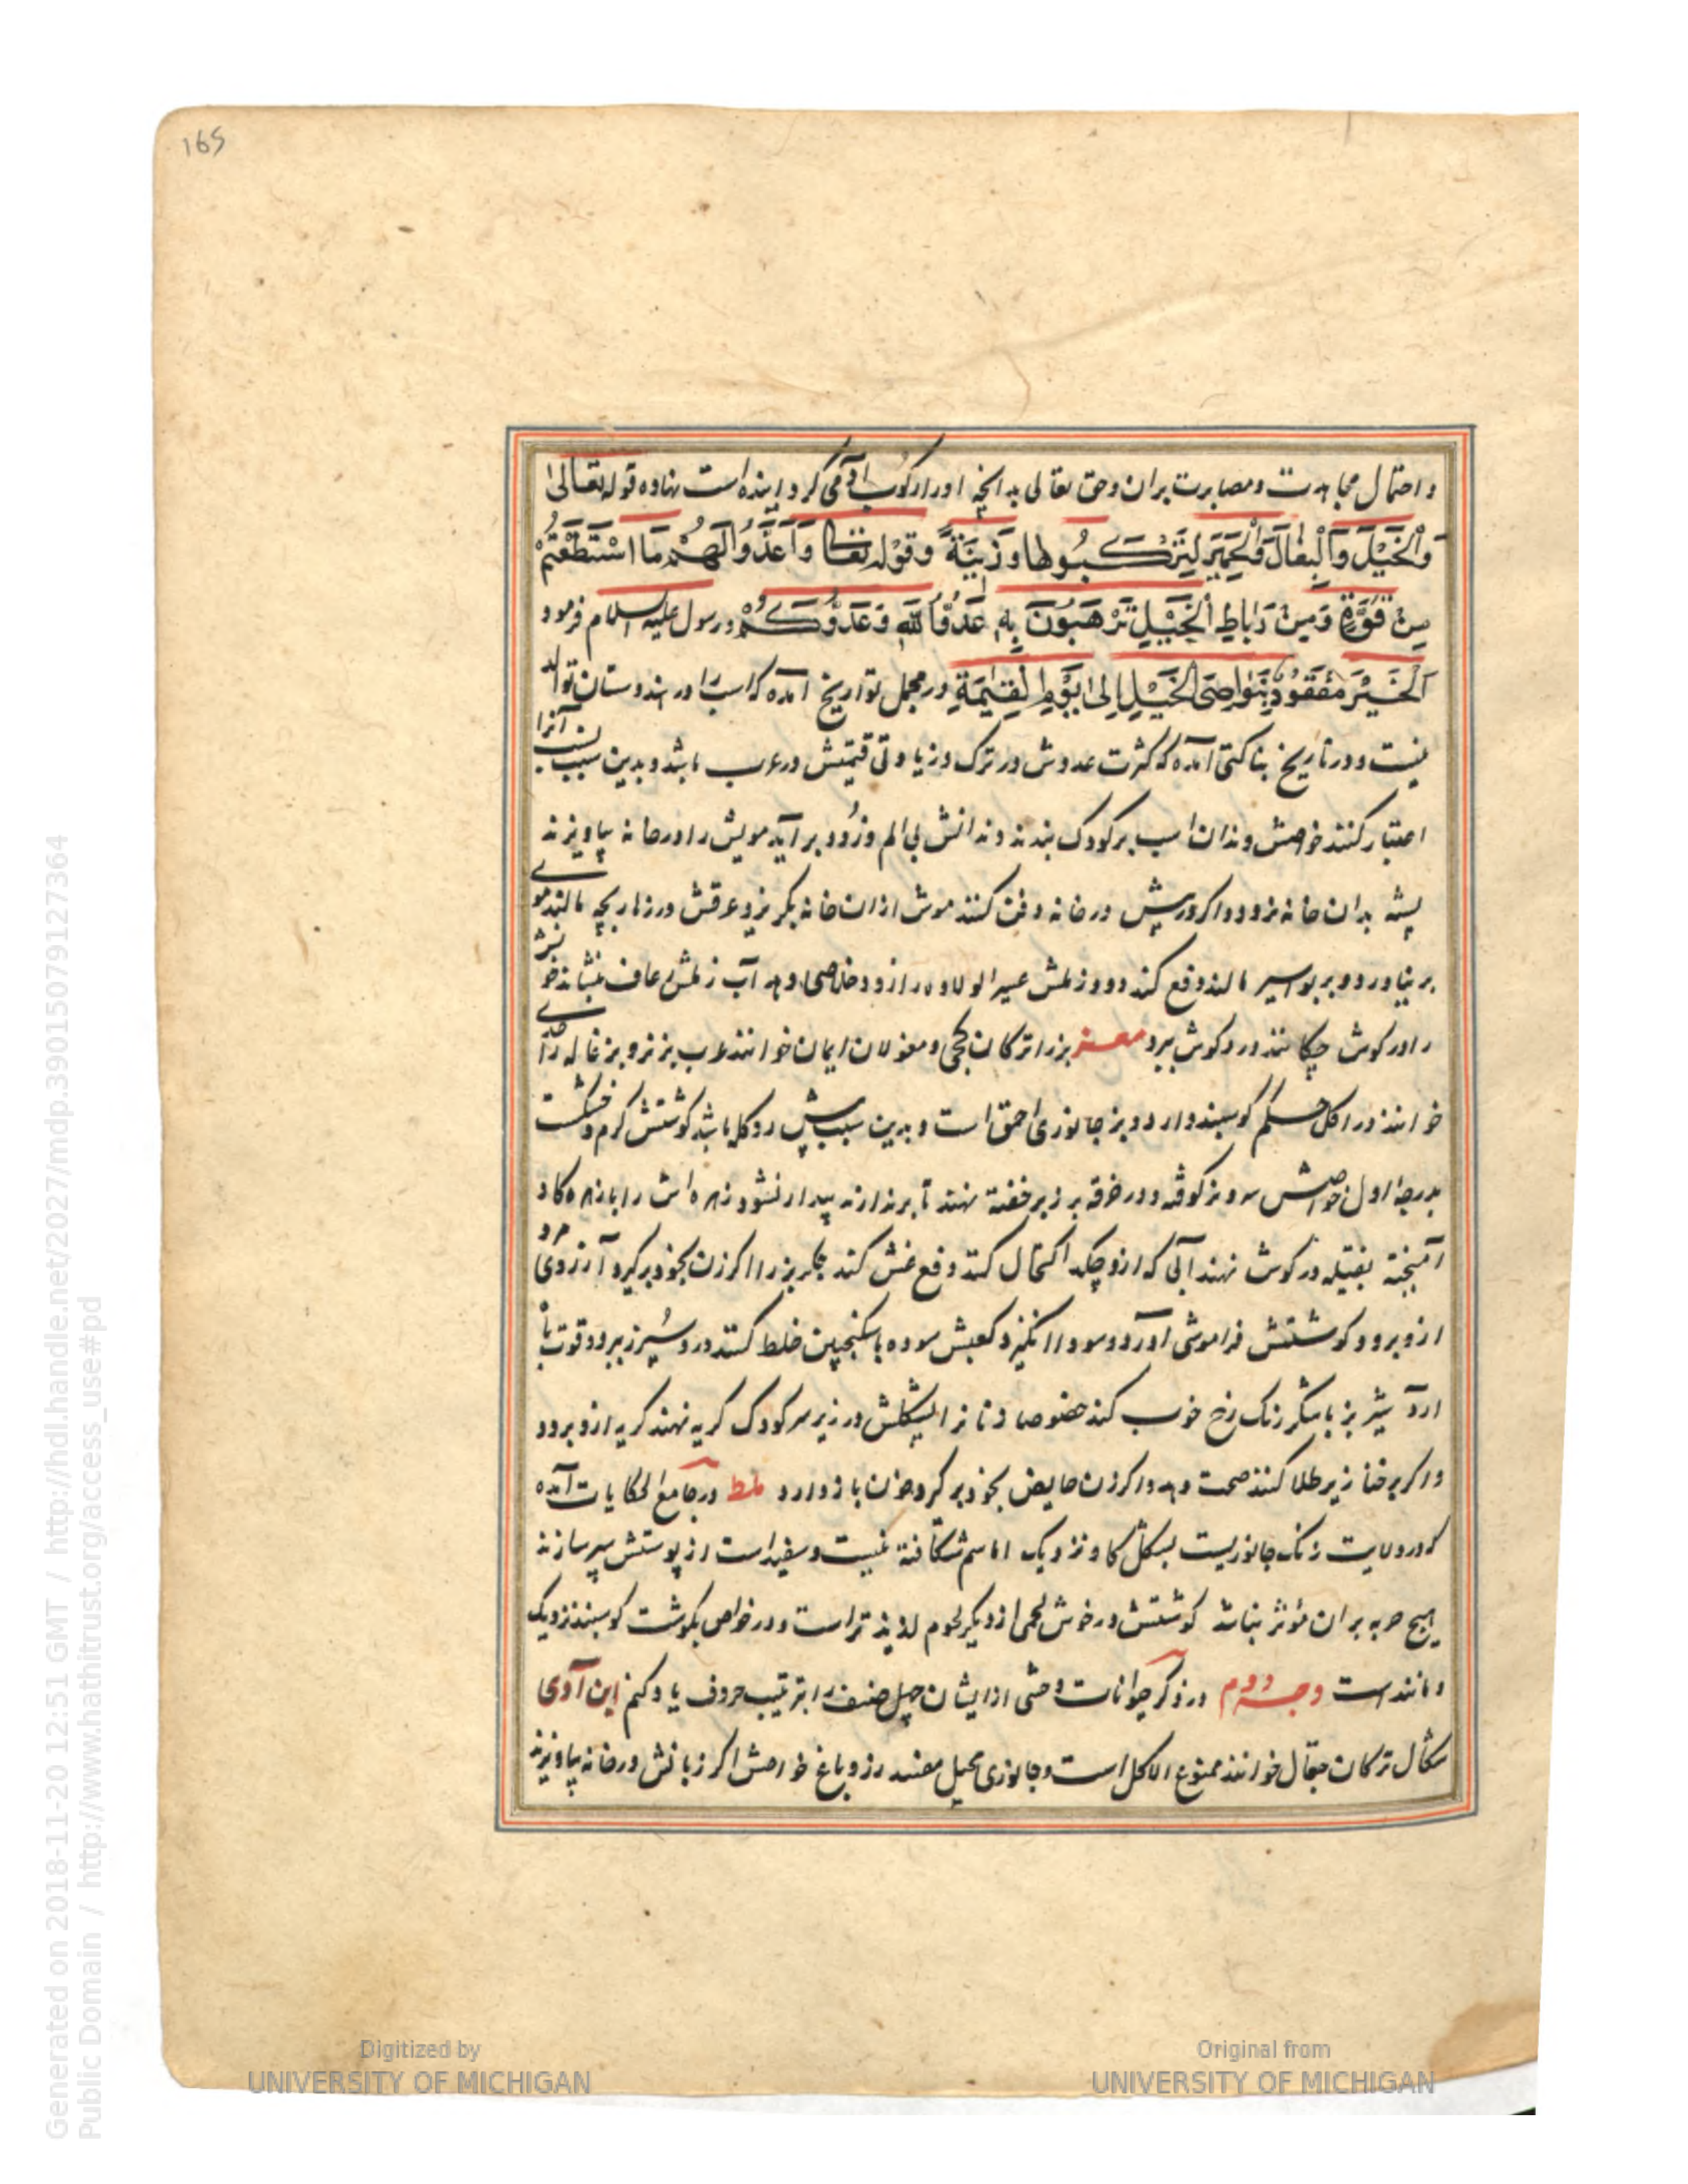 165
و احتمال مجاهدت و مصابرت بران و حق تعالی بدانچه او را رکوب آدمی کردانیده است نهاده قوله تعالی
وَالْخَيْلَ وَالْبِغَالَ وَالْحَمِيرَ لِتَرْكَبُوهَا وَزِينَةً وقوله تعالی وَأَعِدُّوا لَهُمْ مَا اسْتَطَعْتُمْ
مِنْ قُوَّةٍ وَمِنْ رِبَاطِ الْخَيْلِ تُرْهِبُونَ بِهِ عَدُوَّ اللهِ وَعَدُوَّكُمْ و رسول علیه السلام فرمود
الْخَيْرَ مَعْقُودٌ بِنَوَاصِی الْخَيْلِ إِلَی يَوْمِ الْقِيَمَةِ در مجمل تواریخ آمده که اسب را در هندوستان توالد
نیست و در تاریخ بناکتی آمده که کثرت عدوش در ترک و زیادتی قیمتش در عرب باشد و بدین سبب نسب آنرا
اعتبار کنند خواصش دندان اسب بر کودک بندند دندانش بی الم و زود بر آید مویش را در خانه بیاویزند
پشه بدان خانه نرود و اکر در خانه دفن کنند موش ازان خانه بکریزد عرقش در زهار بچه مالند موی
بر نیاورد و بر بواسیر مالند دفع کند دود زبلش عسیر الولاده را زود خلاصی دهد آب زبلش رعاف بنشاند خونش
را در کوش چکانند درد کوش ببرد معز بز را ترکان کجی و مغولان ایمان خوانند عرب بز نر و بزغاله را جدی
خوانند در اکل حکم کوسپند دارد و بز جانوری احمق است و بدین سبب پیش رو کله باشد کوشتش کرم و خشکست
بدرجه اول خواصش سرو بز کوفته و در خرقه بر زیر خفته نهند تا برندارند بیدار نشود زهره اش را با زهره کاو
آمیخته بفتیله در کوش نهند آبی که ازو چکد اکتحال کنند دفع غش کند جکر بز را اکر زن بخود بر کیرد آرزوی مرد
ازو برود کوشتش فراموشی آورد و سودا انکیزد کعبش سوده با سکنجبین خلط کنند درد سپرز ببرد و قوت باه
آرد شیر بز با شکر رنک رخ خوب کند خصوصا زنانرا پشکلش در زیر سر کودک کریه نهند کریه ازو برود
و اکر بر خنازیر طلا کنند صحت دهد و اکر زن حایض بخود بر کیرد خون باز دارد ملط در جامع الحکایات آمده
که در ولایت زنک جانوریست بشکل کاو نزدیک اما سم شکافته نیست و سفیداست از پوستش سپر سازند
هیچ حربه بران مؤثر نباشد کوشتش در خوش لحمی از دیکر لحوم لذیذتر است و در خواص بکوشت کوسپند نزدیک
و مانند است وجه دوم در ذکر حیوانات وحشی از ایشان چهل صنف را بترتیب حروف یاد کنیم ابن آوی
شکال ترکان جقال خوانند ممنوع الاکل است و جانوری محیل مفسد رز و باغ خواصش اکر زبانش در خانه بیاویزند
Digitized by
UNIVERSITY OF MICHIGAN
Original from
UNIVERSITY OF MICHIGAN
Generated on 2018-11-20 12:51 GMT / http://hdl.handle.net/2027/mdp.39015079127364
Public Domain / http://www.hathitrust.org/access_use#pd